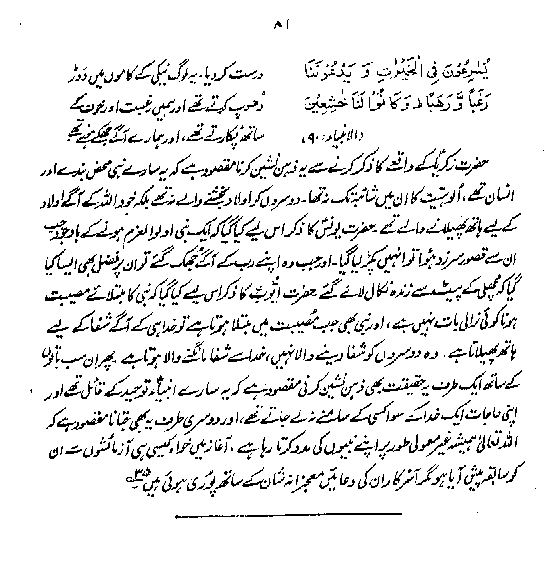 ۸۱
يُسٰرِعُوْنَ فِي الْخَيْرٰتِ وَ يَدْعُوْنَنَا
رَغَبًا وَّ رَهَبًا ؕ وَ كَانُوْا لَنَا خٰشِعِيْنَ
(الانبیاء: ۹۰)
درست کر دیا۔ یہ لوگ نیکی کے کاموں میں دَوڑ
دُھوپ کرتے تھے اور ہمیں رغبت اور خوف کے
ساتھ پکارتے تھے، اور ہمارے آگے جھکے ہوئے تھے
حضرت زکریاؑ کے واقعے کا ذکر کرنے سے یہ ذہن نشین کرنا مقصود ہے کہ یہ سارے نبی محض بندے اور
انسان تھے، اُلوہیت کا ان میں شائبہ تک نہ تھا۔ دوسروں کو اولاد بخشنے والے نہ تھے بلکہ خود اللہ کے آگے اولاد
کے لیے ہاتھ پھیلانے والے تھے۔ حضرت یونسؑ کا ذکر اس لیے کیا گیا کہ ایک نبی اولوالعزم ہونے کے باوجود جب
ان سے قصور سرزد ہوا تو انہیں پکڑ لیا گیا۔ اور جب وہ اپنے رب کے آگے جھک گئے تو ان پر فضل بھی ایسا کیا
گیا کہ مچھلی کے پیٹ سے زندہ نکال لائے گئے حضرت ایّوبؑ کا ذکر اس لیے کیا گیا کہ نبی کا مبتلائے مصیبت
ہونا کوئی نرالی بات نہیں ہے، اور نبی بھی جب مُصیبت میں مبتلا ہوتا ہے تو خدا ہی کے آگے شفا کے لیے
ہاتھ پھیلاتا ہے۔ وہ دوسروں کو شفا دینے والا نہیں، خدا سے شفا مانگنے والا ہوتا ہے۔ پھر ان سب باتوں
کے ساتھ ایک طرف یہ حقیقت بھی ذہن نشین کرنی مقصود ہے کہ یہ سارے انبیاؑء توحید کے قائل تھے اور
اپنی حاجات ایک خدا کے سوا کسی کے سامنے نہ لے جاتے تھے، اور دوسری طرف یہ بھی جتانا مقصود ہے کہ
اللہ تعالیٰ ہمیشہ غیر معمولی طور پر اپنے نبیوں کی مدد کرتا رہا ہے، آغاز میں خواہ کیسی ہی آزمائشوں سے ان
کو سابقہ پیش آیا ہو مگر آخر کار ان کی دعائیں معجزانہ شان کے ساتھ پوری ہوئی ہیں